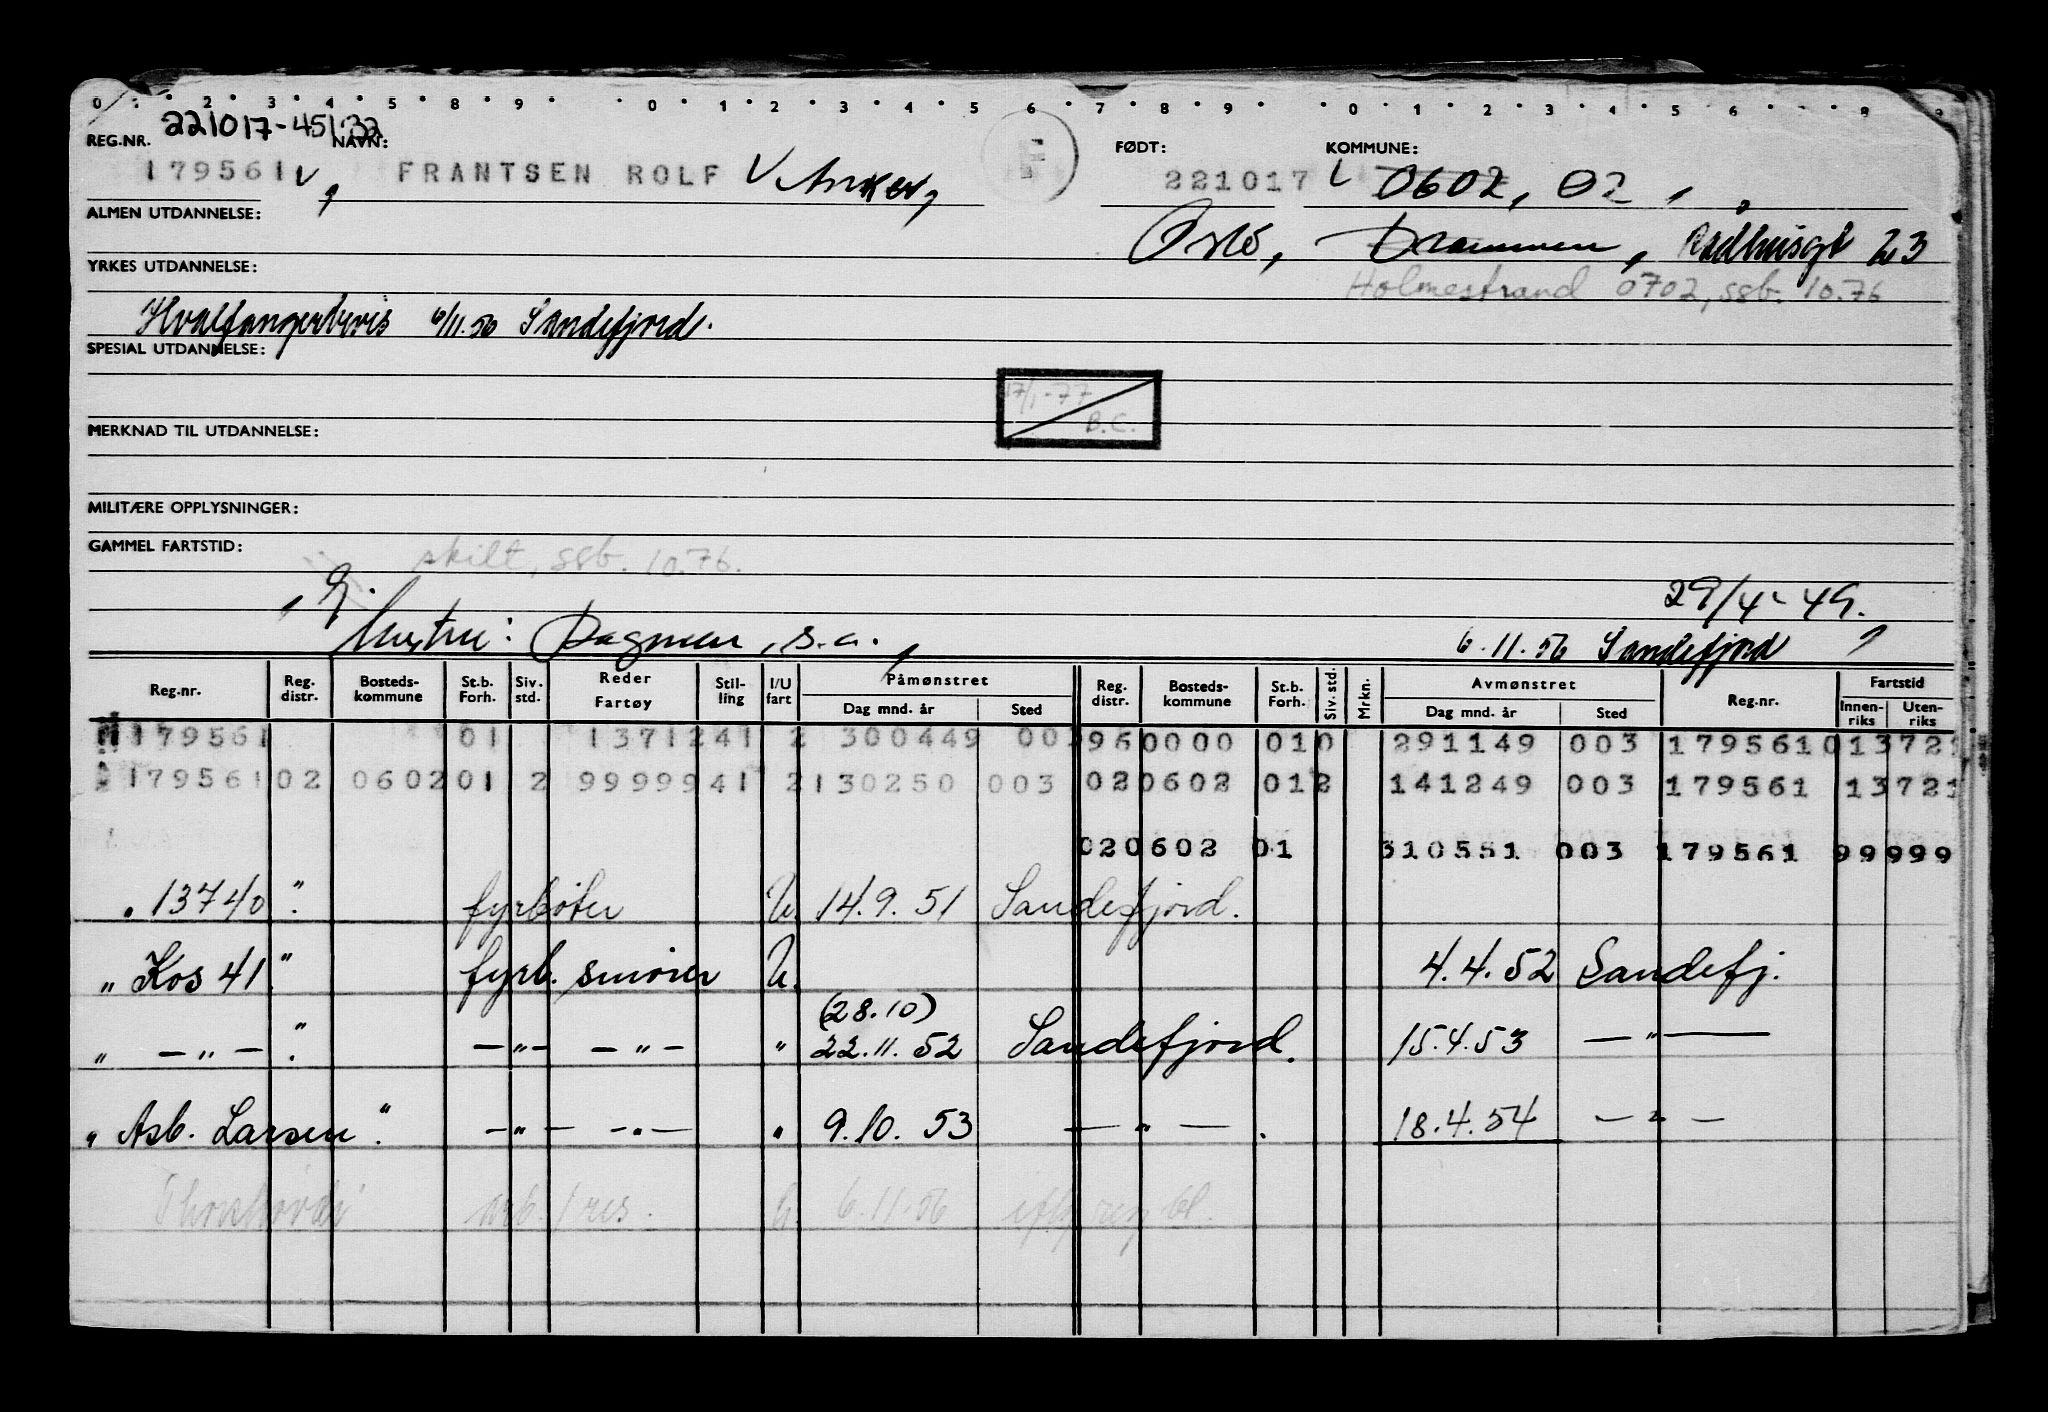 0 1 2 3 4 5 8 9 0 1 2 3 4 5 6 7 8 9 0 1 2 3 4 5 6 8 9
REG.NR. 221017-45132 NAVN: FØDT: KOMMUNE:
179561 v, FRANTSEN ROLF V Anker, 221017 0602, 02,
ALMEN UTDANNELSE: Oslo, Drammen, Rådhusgt 23
YRKES UTDANNELSE: Holmestrand 0702, ssb. 10.76
Hvalfangerbevis 6/11.56 Sandefjord.
SPESIAL UTDANNELSE:
17/1-77
B.C.
MERKNAD TIL UTDANNELSE:
MILITÆRE OPPLYSNINGER:
GAMMEL FARTSTID:
skilt, ssb. 10.76.
, g. 29/4-49.
Hustru: Dagmar, s.a., 6.11.56 Sandefjord
Reg.nr. Reg. distr. Bosteds-kommune St.b. Forh. Siv. std. Reder Fartøy Stil-ling I/U fart Påmønstret Dag mnd. år Sted Reg. distr. Bosteds-kommune St.b. Forh. Siv. std. Mrkn. Avmønstret Dag mnd. år Sted Reg.nr. Fartstid Innen-riks Uten-riks
179561 01 13712 41 2 300449 003 96 0000 01 0 291149 003 179561 0 13721
179561 02 0602 01 2 99999 41 2 130250 003 02 0602 01 2 141249 003 179561 13721
02 0602 01 310551 003 179561 99999
" 13740 " fyrbøter U. 14.9.51 Sandefjord.
" Kos 41 " fyrb. smører U. 4.4.52 Sandefj.
(28.10)
" — " — " — " — — " — " 22.11.52 Sandefjord. 15.4.53 — " —
" Asb. Larsen " — " — — " — " 9.10.53 — " — . 18.4.54 — " —
Thorshavdi arb. / res. U. 6.11.56 iflg. reg. bl.